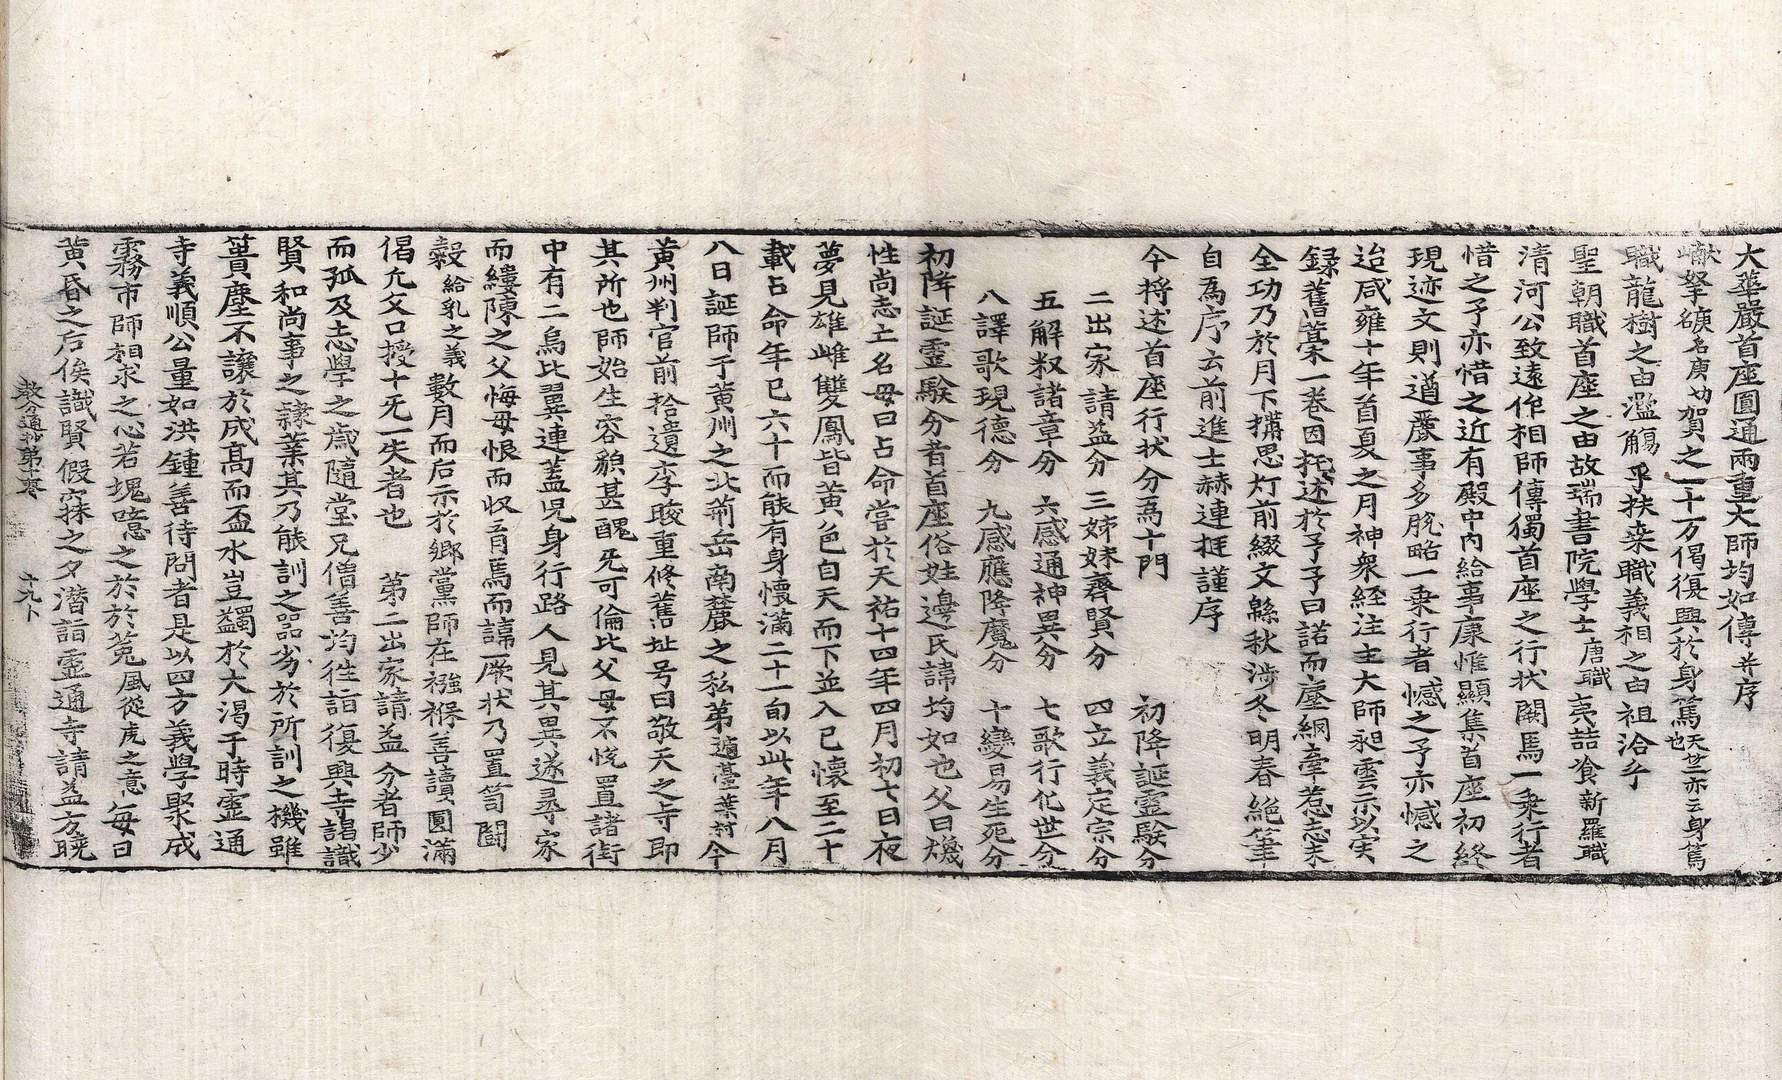 大華嚴首座圓通兩重大師均如傳并序
巘拏㰖名庚切賀之一十万偈復興於身篤天世亦云身篤也
職龍樹之由濫觴乎扶桒職義相之由祖洽乎
聖朝職首座之由故瑞書院學士唐職夷喆湌新羅職
清河公致遠作相師傳獨首座之行狀闕焉一乗行者
惜之予亦惜之近有殿中內給事康惟顯集首座初終
現迹文則遒麗事多脫略一乗行者憾之予亦憾之
迨咸雍十年首夏之月神衆経注主大師昶雲示以実
録舊藁一卷因托述於予予曰諾而塵網牽惹志未
全功乃於月下搆思灯前綴文緜秋涉冬明春絕筆
自為序云前進士赫連挺謹序
今將述首座行狀分為十門　初降誕靈驗分
二出家請益分　三姊妹齊賢分　四立義定宗分
五解釈諸章分　六感通神異分　七歌行化世分
八譯歌現德分　九感應降魔分　十變易生死分
初降誕靈驗分者首座俗姓邊氏諱均如也父曰煥
性尚志士名母曰占命嘗於天祐十四年四月初七日夜
夢見雄雌雙鳳皆黃色自天而下並入己懷至二十
載占命年已六十而能有身懷滿二十一旬以此年八月
八日誕師于黃州之北荊岳南麓之私第遁臺葉村今
黃州判官前拾遺李晙重修舊址号曰敬天之寺即
其所也師始生容貌甚醜无可倫比父母不悅置諸街
中有二烏比翼連盖児身行路人見其異遂尋家
而縷陳之父悔母恨而收育焉而諱厥狀乃置笥闘
㝅給乳之義數月而后示於鄉黨師在襁褓善讀圓滿
偈凡父口授十无一失者也　第二出家請益分者師少
而孤及志學之歲隨堂兄僧善均徃詣復興寺謁識
賢和尚事之隷業其乃能訓之器劣於所訓之機雖
簣塵不讓於成高而盃水豈蠲於大渴于時靈通
寺義順公量如洪鍾善待問者是以四方義學聚成
霧市師相求之心若塊噫之於於菟風從虎之意每日
黃昏之后俟識賢假寐之夕潛詣靈通寺請益方曉
教分通抄第十卷　十九卜